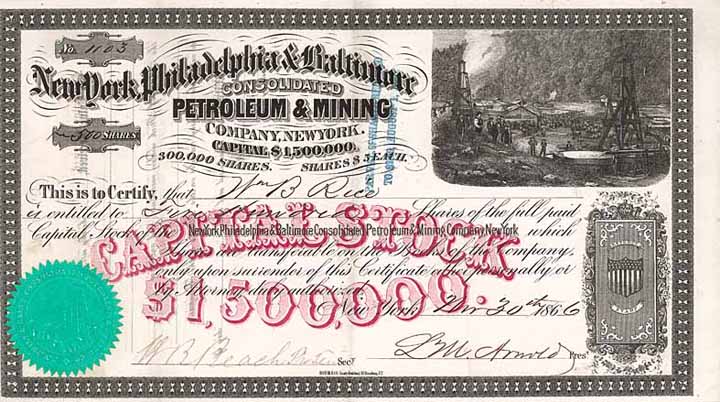 No. 1103
New York, Philadelphia & Baltimore
CONSOLIDATED
PETROLEUM & MINING
COMPANY, NEW YORK.
CAPITAL $1,500,000.
300,000 SHARES. SHARES $5 EACH.
500 SHARES
This is to Certify, that Wm B Rice
is entitled to Five Hundred Shares of the full paid
Capital Stock of the New York Philadelphia & Baltimore Consolidated Petroleum & Mining Company New York which
are transferable on the Books of the Company
only upon surrender of this Certificate personally or
by Attorney duly authorized.
CAPITAL STOCK
$1,500,000.
New York Nov 30th 1866
W B Beach Secy L M Arnold Pres